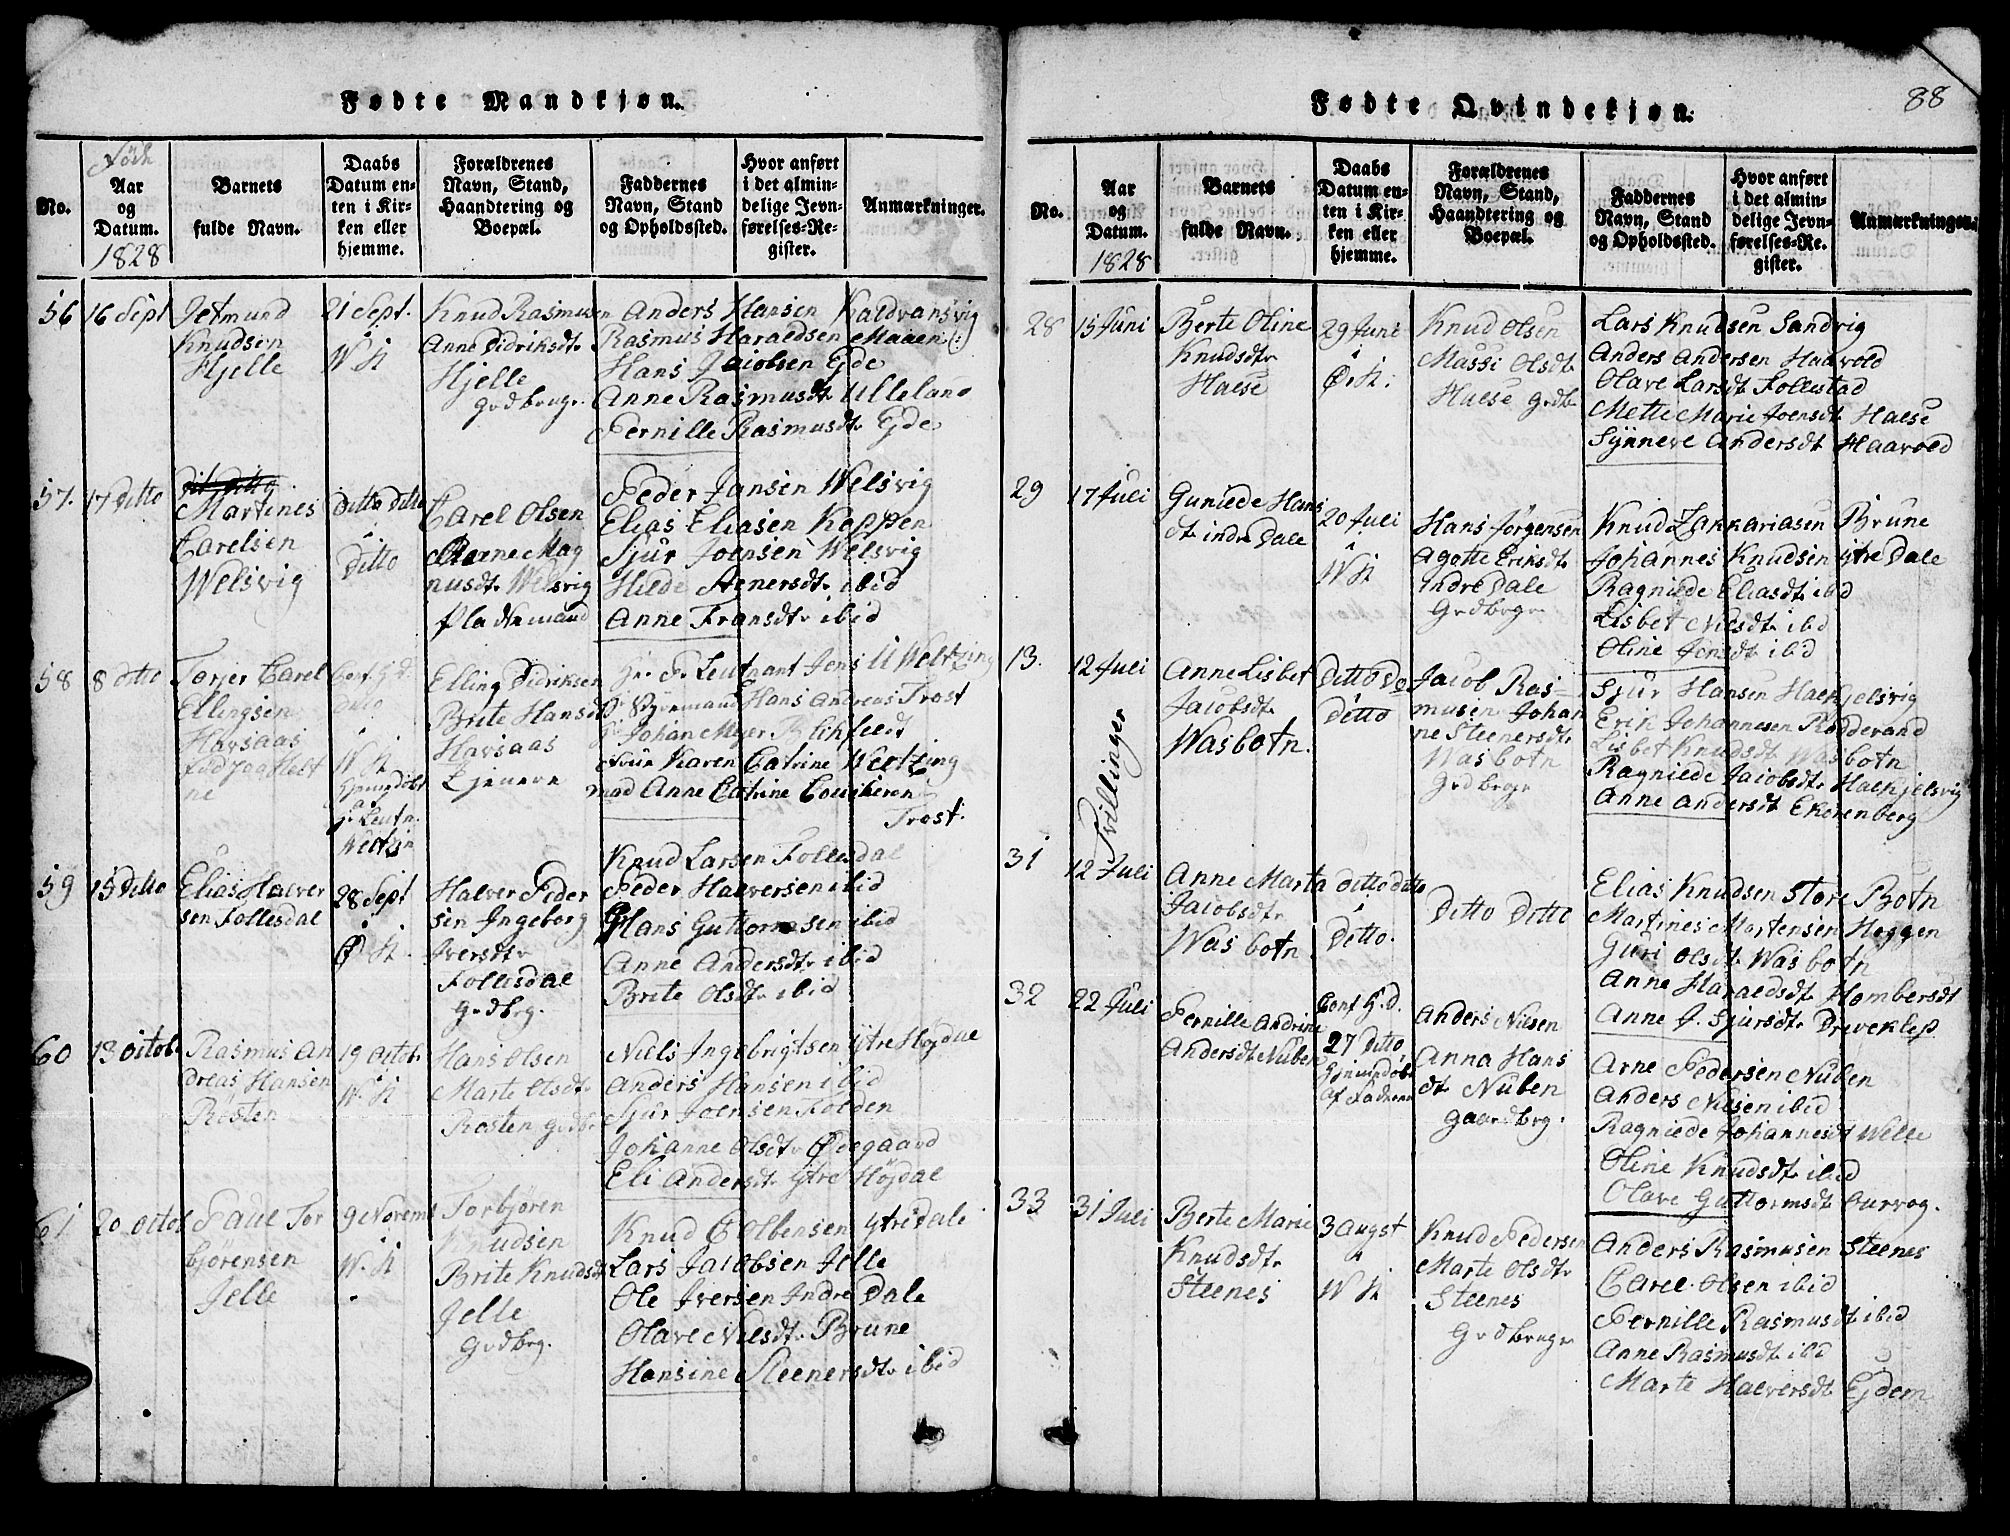 Fødte Mandkjøn.
No.
Født
Aar
og
Datum.
1828
Barnets
fulde Navn.
Daabs
Datum en-
ten i Kir-
ken eller
hjemme.
Forældrenes
Navn, Stand,
Haandtering og
Boepæl.
Faddernes
Navn, Stand
og Opholdssted.
Hvor anført
i det almin-
delige Jevn-
førelses-Re-
gister.
Anmærkninger.
56
16 Sept
Jetmund
Knudsen
Hjelle
21 Sept.
W K
Knud Rasmusen
Anne Didriksdtr
Hjelle
grdbrugr.
Anders Hansen Kaldvansvig
Rasmus Haraldsen Maaen
Hans Jacobsen Ejde
Anne Rasmusdtr Ulleland
Pernille Rasmusdtr Ejde
57.
17 Ditto
Martines
Carelsen
Welsvig
Ditto Ditto
i
Ditto
Carel Olsen
Marne Mag
nusdtr Welsvig
Pladsemand
Peder Jansen Welsvig
Elias Eliasen Koppen
Sjur Joensen Welsvig
Hilde Stenersdtr ibid
Anne Fransdtr ibid
58
8 ditto
Torjer Carel
Ellingsen
Havsaas
ne
Conf. G d.
ditto
i
W K
Hjemedøbt
af
Hr Leutn.
Weltzin
Elling Didriksen
Brite Hansdtr
Havsaas
Tjenere
Hr. P. Leutnant Jens U Weltzing
Styrmand Hans Andreas Trost
Johan Meyer Blihfeldt
Frue Karen Catrine Weltzing
mad Anne Catrine
Trost.
59
15 Ditto
Elias Halver
sen Follesdal
28 Sept
i
Ø. K.
Halver Peder
sen Ingeborg
Iversdtr
Follesdal
Grdbrg.
Knud Larsen Follesdal
Peder Halversen ibid
Hans Guttormsen ibid
Anne Andersdtr ibid
Brite Olsdtr ibid
60
13 octob.
Rasmus An
dreas Hansen
Røsten
19 octob.
i
W. K
Hans Olsen
Marte Olsdtr
Rosten grdbr
Niels Ingebrigtsen Ytre Højdal
Anders Hansen ibid
Sjur Joensen Folden
Johanne Olsdtr Ødegaard
Eli Andersdtr Ytre Højdal
61
20 octob
Paul Tor
bjørensen
Jelle
9 Novemb
i
W. K
Torbjøren
Knudsen
Brite Knudsdtr
Jelle
Grdbrg.
Knud Colbensen Ytredale
Lars Jacobsen Jelle
Ole Iversen Indre Dale
Olave Nilsdtr Brune
Hansine Steenersdtr ibid
Fødte Qvindekjøn.
88
No.
Aar
og
Datum.
1828
Barnets
fulde Navn.
Daabs
Datum en-
ten i Kir-
ken eller
hjemme.
Forældrenes
Navn, Stand,
Haandtering og
Boepæl.
Faddernes
Navn, Stand
og Opholdssted.
Hvor anført
i det almin-
delige Jevn-
førelses-Re-
gister.
Anmærkninger.
28
15 Juni
Berte Oline
Knudsdtr
Haese
29 Juni
i
Ø. K.
Knud Olsen
Massi Olsdtr
Haese grdb
Lars Knudsen Sandvig
Anders Andersen Haavold
Olave Larsdt Follestad
Mette Marie Joensdt Haese
Synneve Andersdt Haavold
29
17 Juli
Guniede Hans
dt indre Dale
20 Juli
i
W K
Hans Jørgensen
Agotte Eriksdtr
Indre Dale
Grdbrgr
Knud Zakkariasen Brune
Johannes Knudsen Ytre Dale
Ragniede Eliasdtr ibid
Lisbet Nilsdtr ibid
Oline Jonsdt ibid
13.
12 Juli
Tvillinger
Anne Lisbet
Jacobsdtr
Wasbotn.
Ditto Do
i
Ditto
Jacob Ras-
musen Johan
ne Steenersdtr
Wasbotn
Grdbrgr
Sjur Hansen Haekjelsvig
Erik Johannesen Rødderand
Lisbet Knudsdt Wasbotn
Ragniede Jacobsdtr Haekjelsvig
Anne Andersdt Ekorenberg
31
12 Juli
Anne Marta
Jacobsdtr
Wasbotn
ditto ditto
i
Ditto.
Ditto Ditto
Elias Knudsen Store Botn
Martines Mortensen Heggen
Guri Olsdtr Wasbotn
Anne Haraldsdtr Homberset
Anne J. Sjursdtr Driveklep
32
22 Juli
Pernille Andrine
Andersdt Nuben
Conf G.d.
27 Ditto
Hjemedøbt
af Fadren
Anders Nilsen
Anna Hans
dt Nuben
gaardbrg.
Arne Pedersen Nuben
Anders Nilsen ibid
Ragniede Johannesdt Welle
Oline Knudsdt ibid
Olave Guttormsdt Aurvog.
33
31 Juli
Berte Marie
Knudsdtr
Steenes
3 Augst
i
W K
Knud Pedersen
Marte Olsdtr
Steenes
Grdbrugr
Anders Rasmusen Steenes
Carel Olsen ibid
Pernille Rasmusdt ibid
Anne Rasmusdt ibid
Marte Halversdt Ejdem